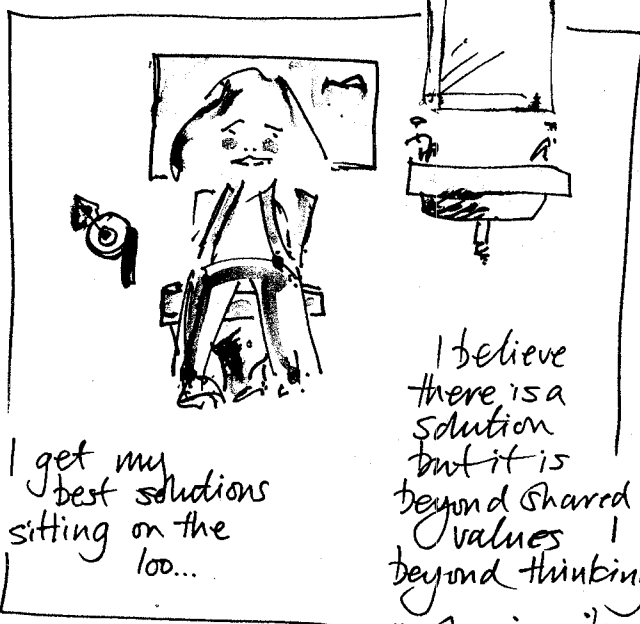 I get my
best solutions
sitting on the
loo...
I believe
there is a
solution
but it is
beyond shared
values
beyond thinkin